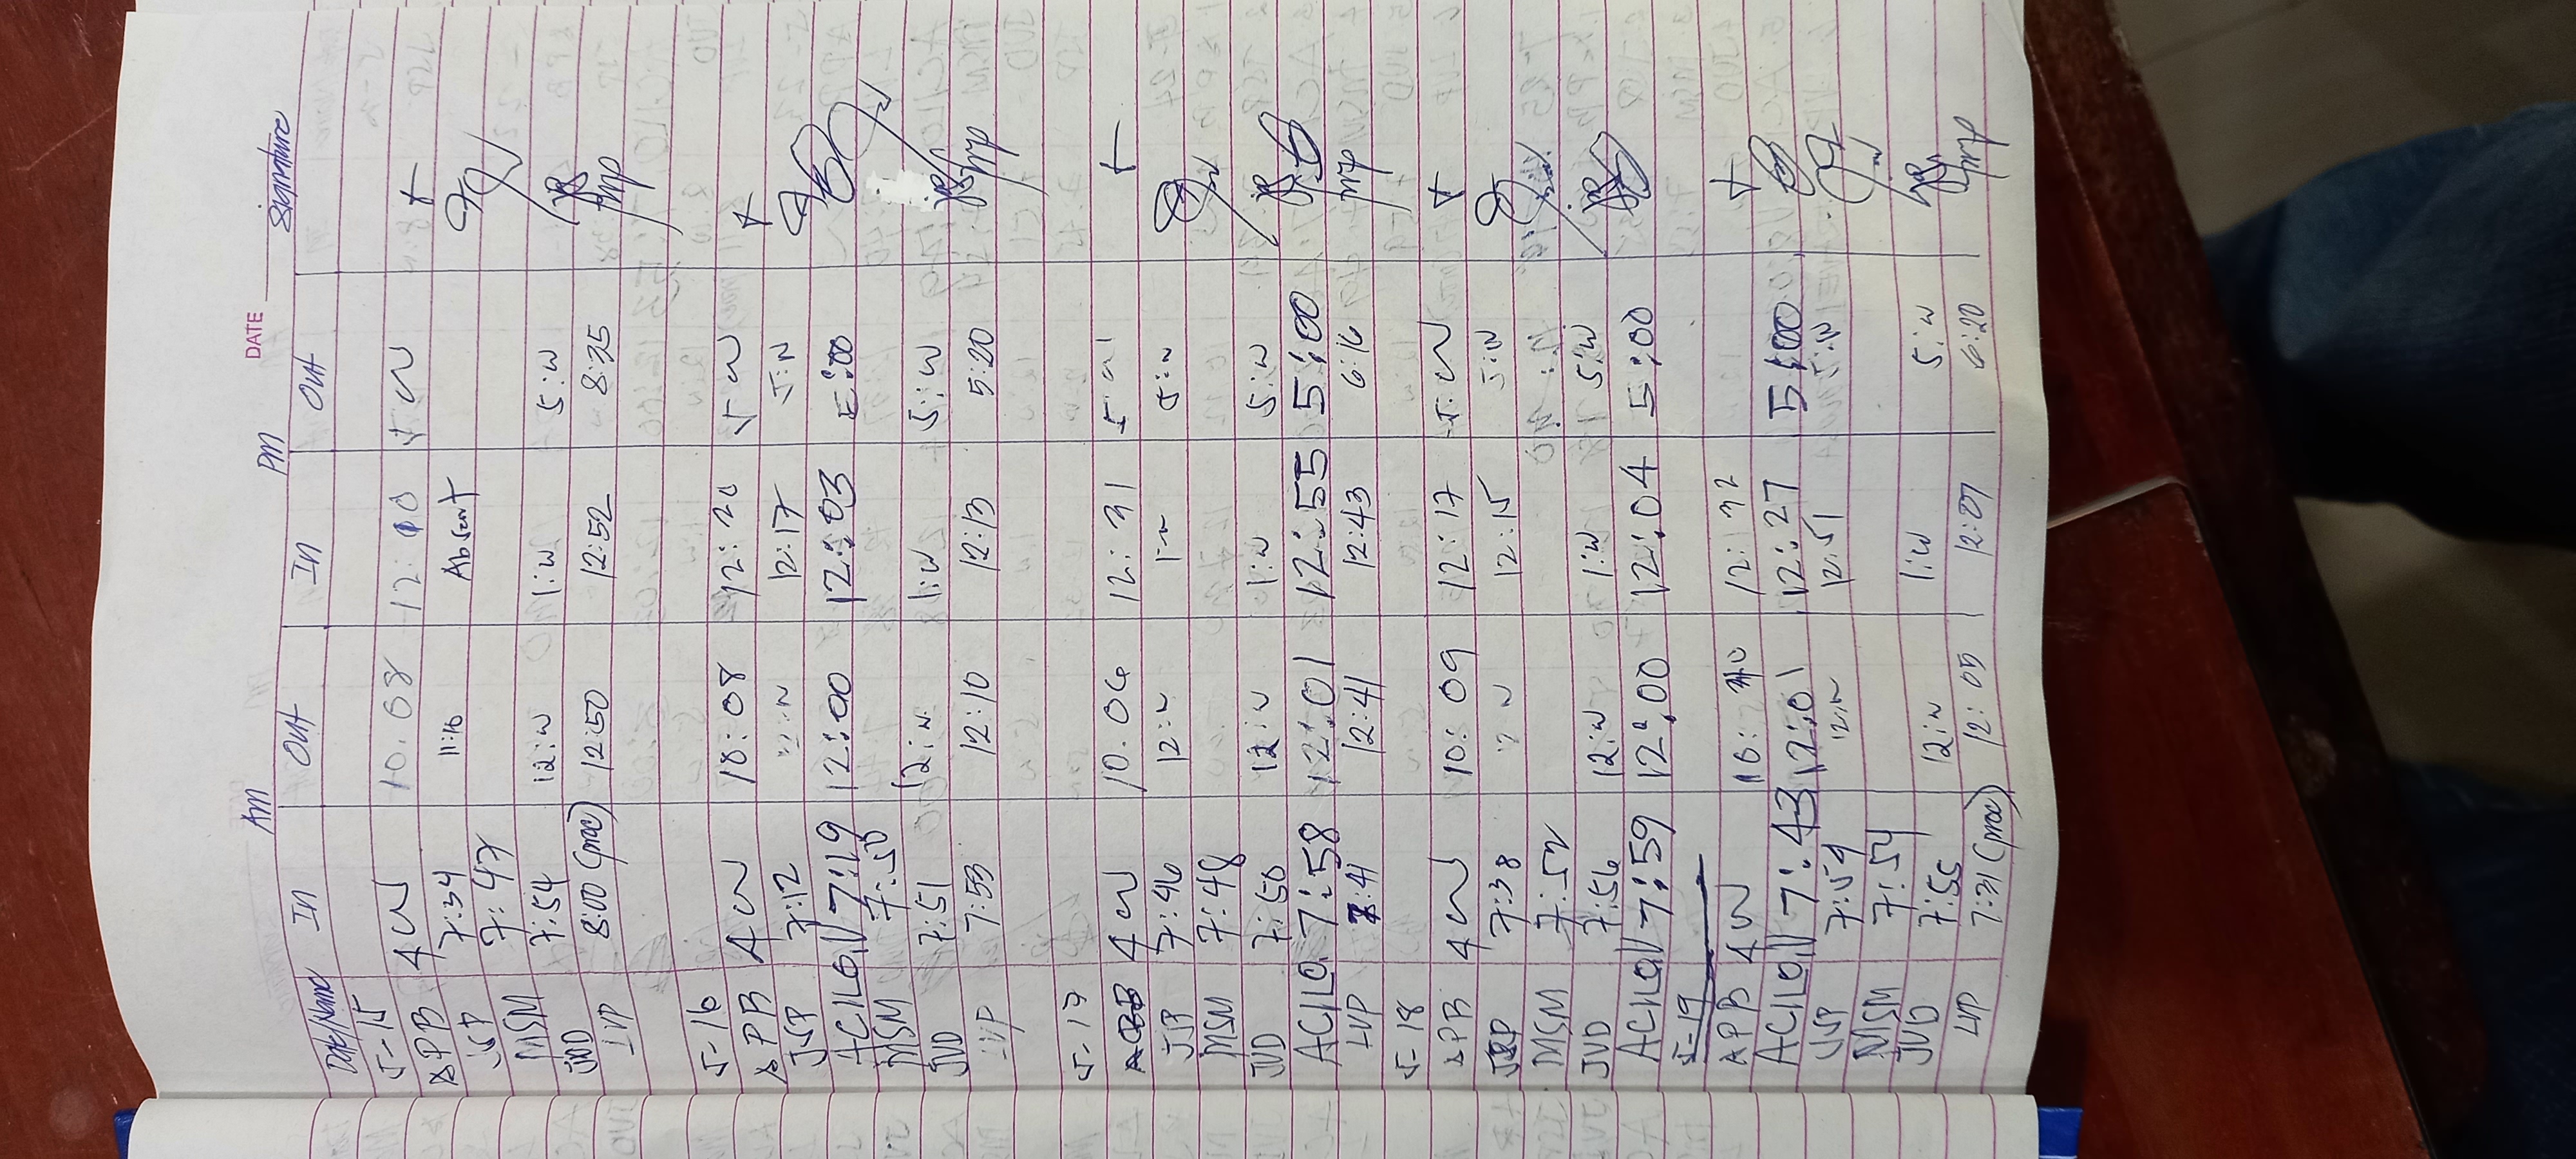 DATE
AM PM
Date/Name In Out In Out Signature
5-15
APB 4 W 10.08 12:10 5 W
JJP 7:34 11:10 Absent
MSM 7:47
JVD 7:54 12:W 1:W 5:W
LVP 8:00 (proc) 12:50 12:52 8:35
5-16
APB 4 W 10:08 12:20 5 W
JJP 7:12 12:17 5:W
ACILO 7:19 12:00 12:03 5:00
MSM 7:50
JVD 7:51 12:W 1:W 5:W
LVP 7:53 12:10 12:13 5:20
5-17
APB 4 W 10.06 12:31
JJP 7:46 12:W 5:W
MSM 7:48
JVD 7:50 12:W 1:W 5:W
ACILO 7:58 12:01 12:55 5:00
LVP 7:41 12:41 12:43 6:16
5-18
APB 4 W 10:09 12:17 5:W
JJP 7:38 12:15 5:W
MSM 7:52
JVD 7:56 12:W 1:W 5:W
ACILO 7:59 12:00 12:04 5:00
5-19
APB 4 W 12:32
ACILO 7:43 12:01 12:27 5:00
JJP 7:54 12:W 12:51 5:W
MSM 7:54
JVD 7:55 12:W 1:W 5:W
LVP 7:31 (proc) 12:05 12:07 6:20